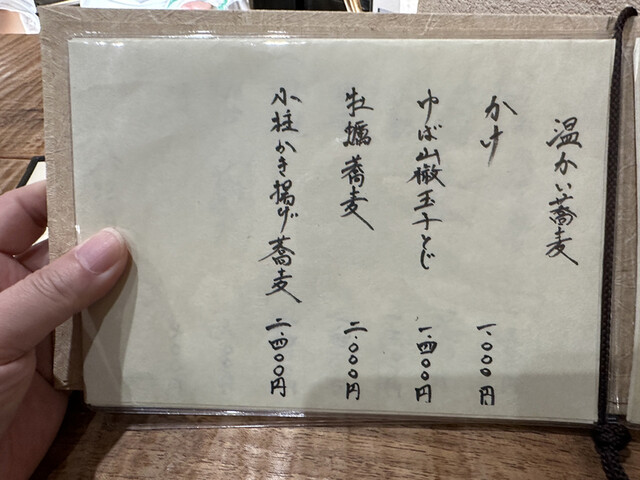 温かい蕎麦
かけ 一、〇〇〇円
ゆば山椒玉子とじ 一、四〇〇円
牡蠣蕎麦 二、〇〇〇円
小柱かき揚げ蕎麦 二、四〇〇円